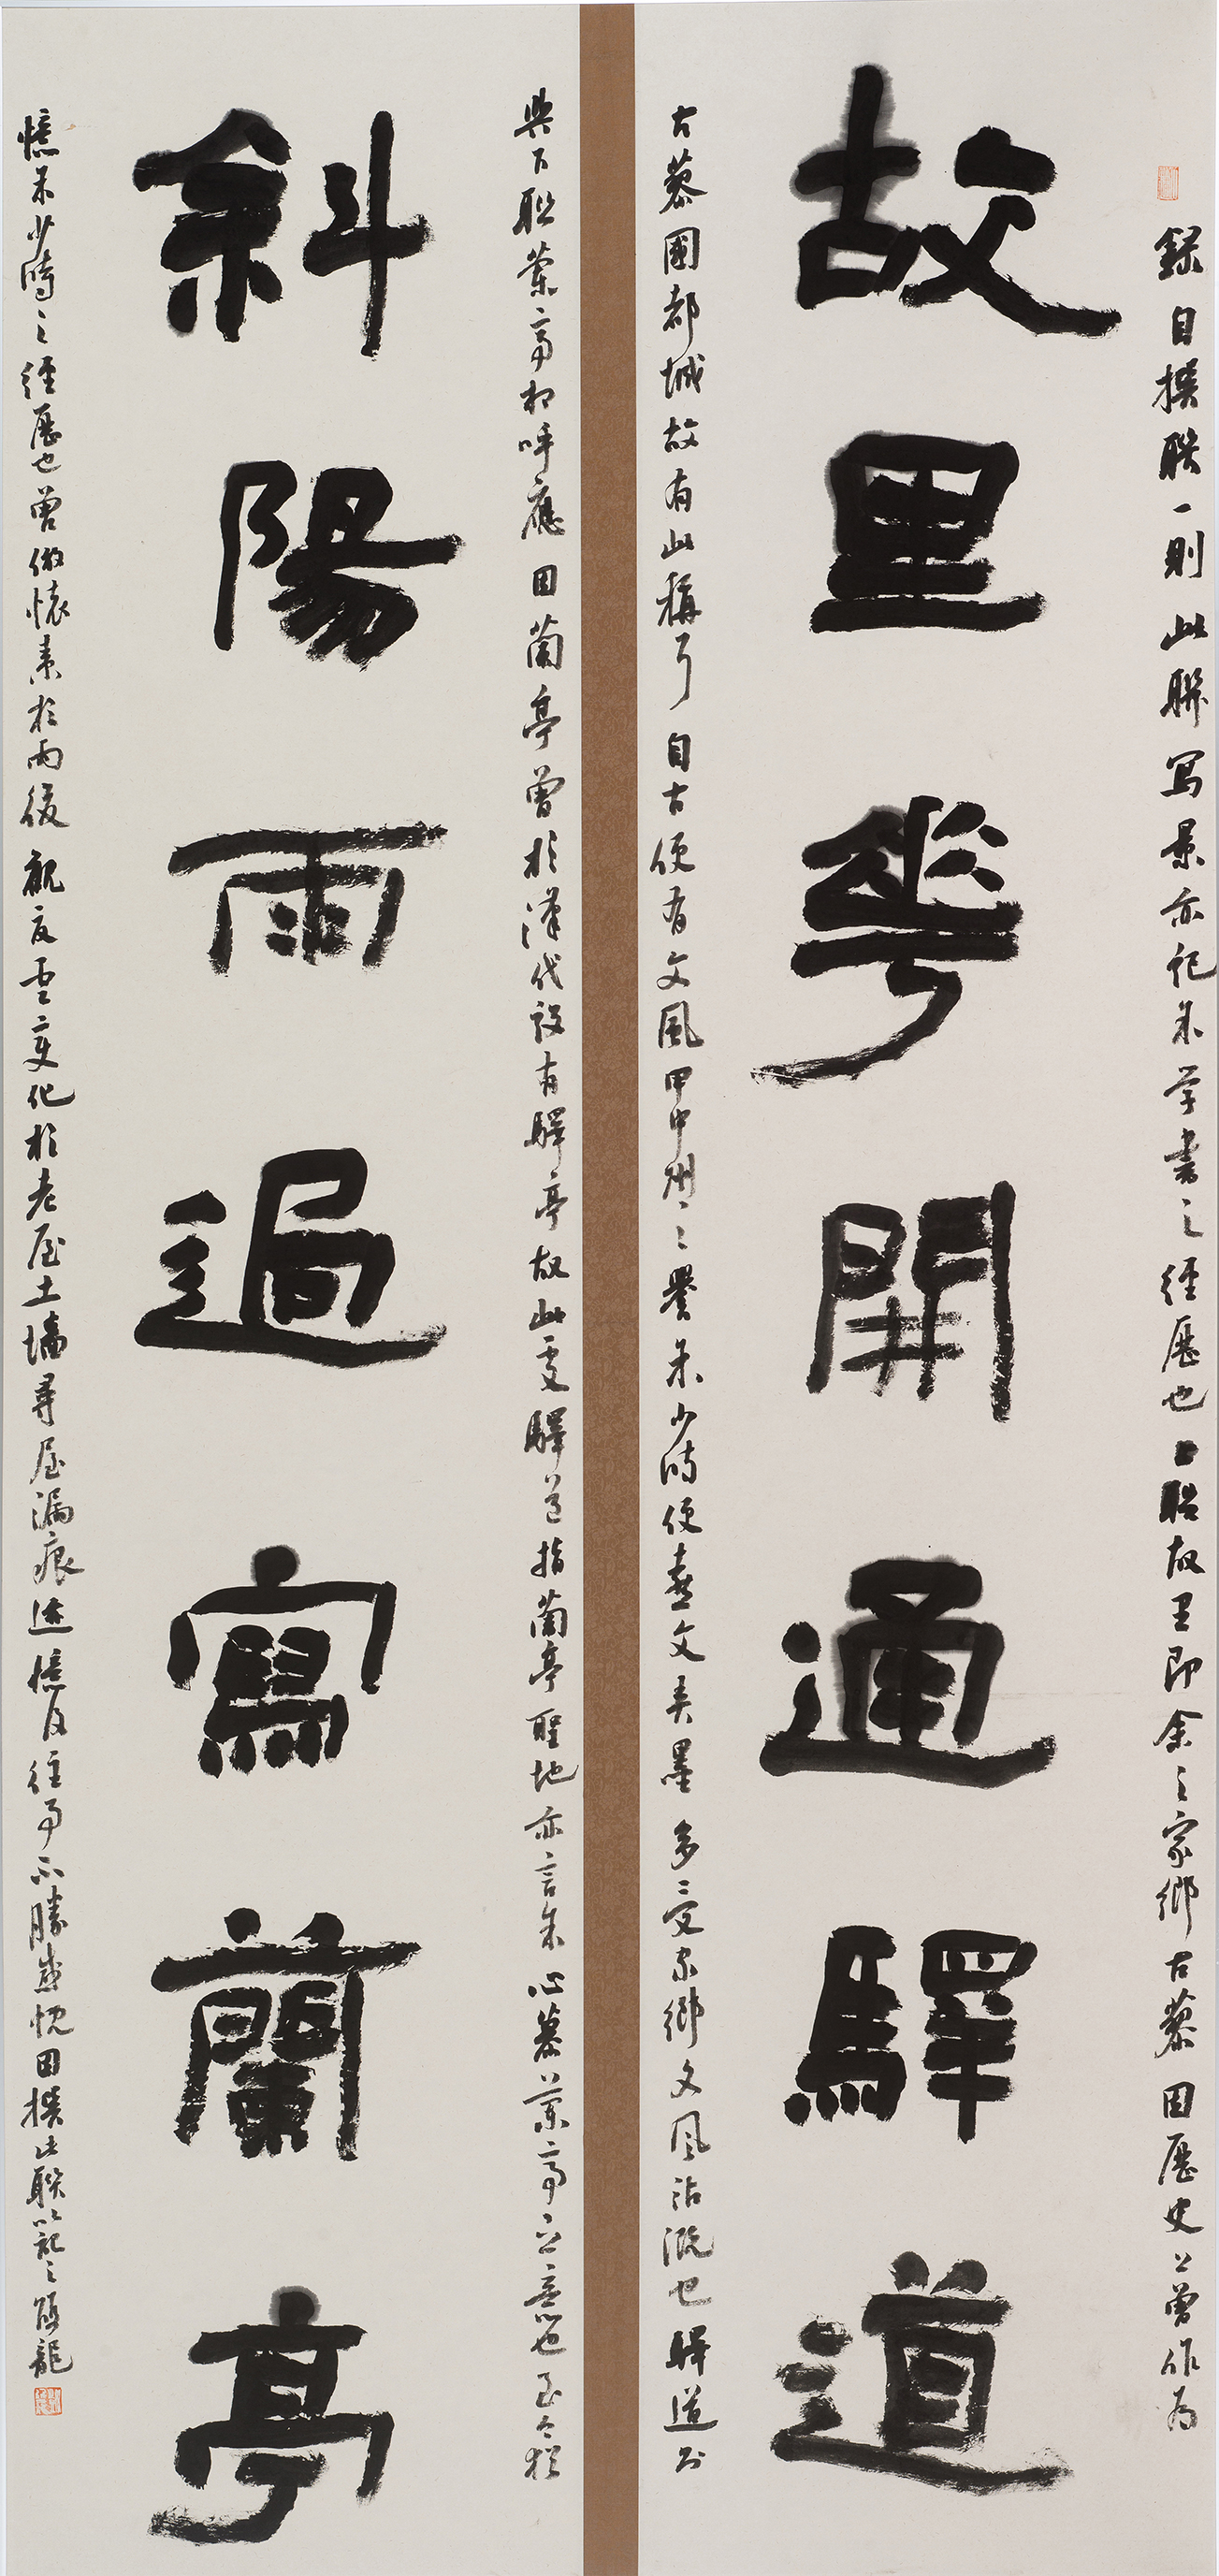 錄自撰联一則此聯写景亦記朱学書之经歷也上聯故里即余之家鄉古蔡因歷史上曾作為
故里華開通驛道
古蔡國都城故有此稱了自古便有文風甲中州之譽朱少時便喜文弄墨多受家鄉文風沾溉也驛道則
與下聯蘭亭相呼應因蘭亭曾於漢代設有驛亭故此處驛道指蘭亭聖地亦言朱心慕蘭亭之意也至今猶
斜陽雨過寫蘭亭
憶朱少時之经歷也曾倣懷素於雨後觀夏雲變化於老屋土墙尋屋漏痕迹憶及往事不勝感忱因撰此聯以記之